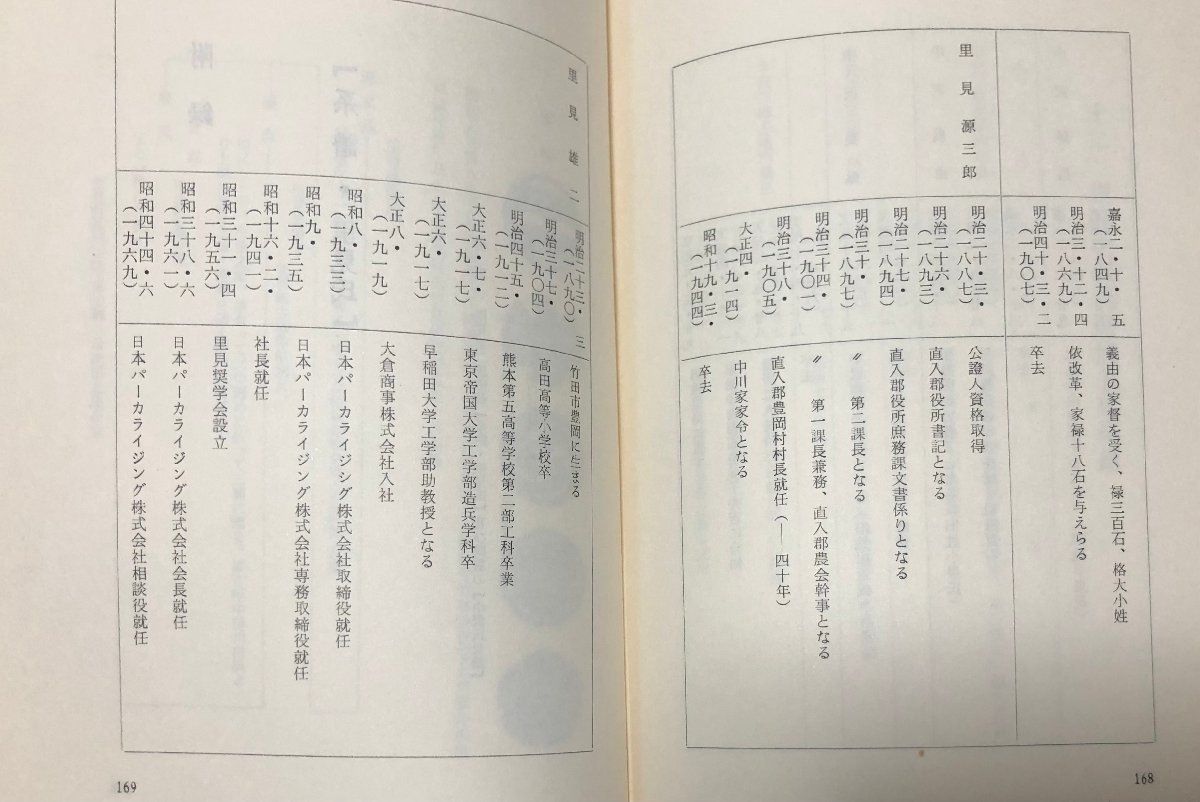 嘉永二・十・五
（一八四九）
義由の家督を受く、禄三百石、格大小姓
明治三・十二・四
（一八六九）
依改革、家禄十八石を与えらる
明治四十・三・二
（一九〇七）
卒去
里見源三郎
明治二十・三・
（一八八七）
公證人資格取得
明治二十六・
（一八九三）
直入郡役所書記となる
明治二十七・
（一八九四）
直入郡役所庶務課文書係りとなる
明治三十・
（一八九七）
〃 第二課長となる
明治三十四・
（一九〇一）
〃 第一課長兼務、直入郡農会幹事となる
明治三十八・
（一九〇五）
直入郡豊岡村村長就任（―四十年）
大正四・
（一九一四）
中川家家令となる
昭和十九・三・
（一九四四）
卒去
168
里見雄二
明治二十三・三
（一八九〇）
竹田市豊岡に生まる
明治三十七・
（一九〇四）
高田高等小学校卒
明治四十五・
（一九一二）
熊本第五高等学校第二部工科卒業
大正六・七・
（一九一七）
東京帝国大学工学部造兵学科卒
大正六・
（一九一七）
早稲田大学工学部助教授となる
大正八・
（一九一九）
大倉商事株式会社入社
昭和八・
（一九三三）
日本パーカライジング株式会社取締役就任
昭和九・
（一九三五）
日本パーカライジング株式会社専務取締役就任
昭和十六・二・
（一九四一）
社長就任
昭和三十一・四
（一九五六）
里見奨学会設立
昭和三十八・六
（一九六一）
日本パーカライジング株式会社会長就任
昭和四十四・六
（一九六九）
日本パーカライジング株式会社相談役就任
169